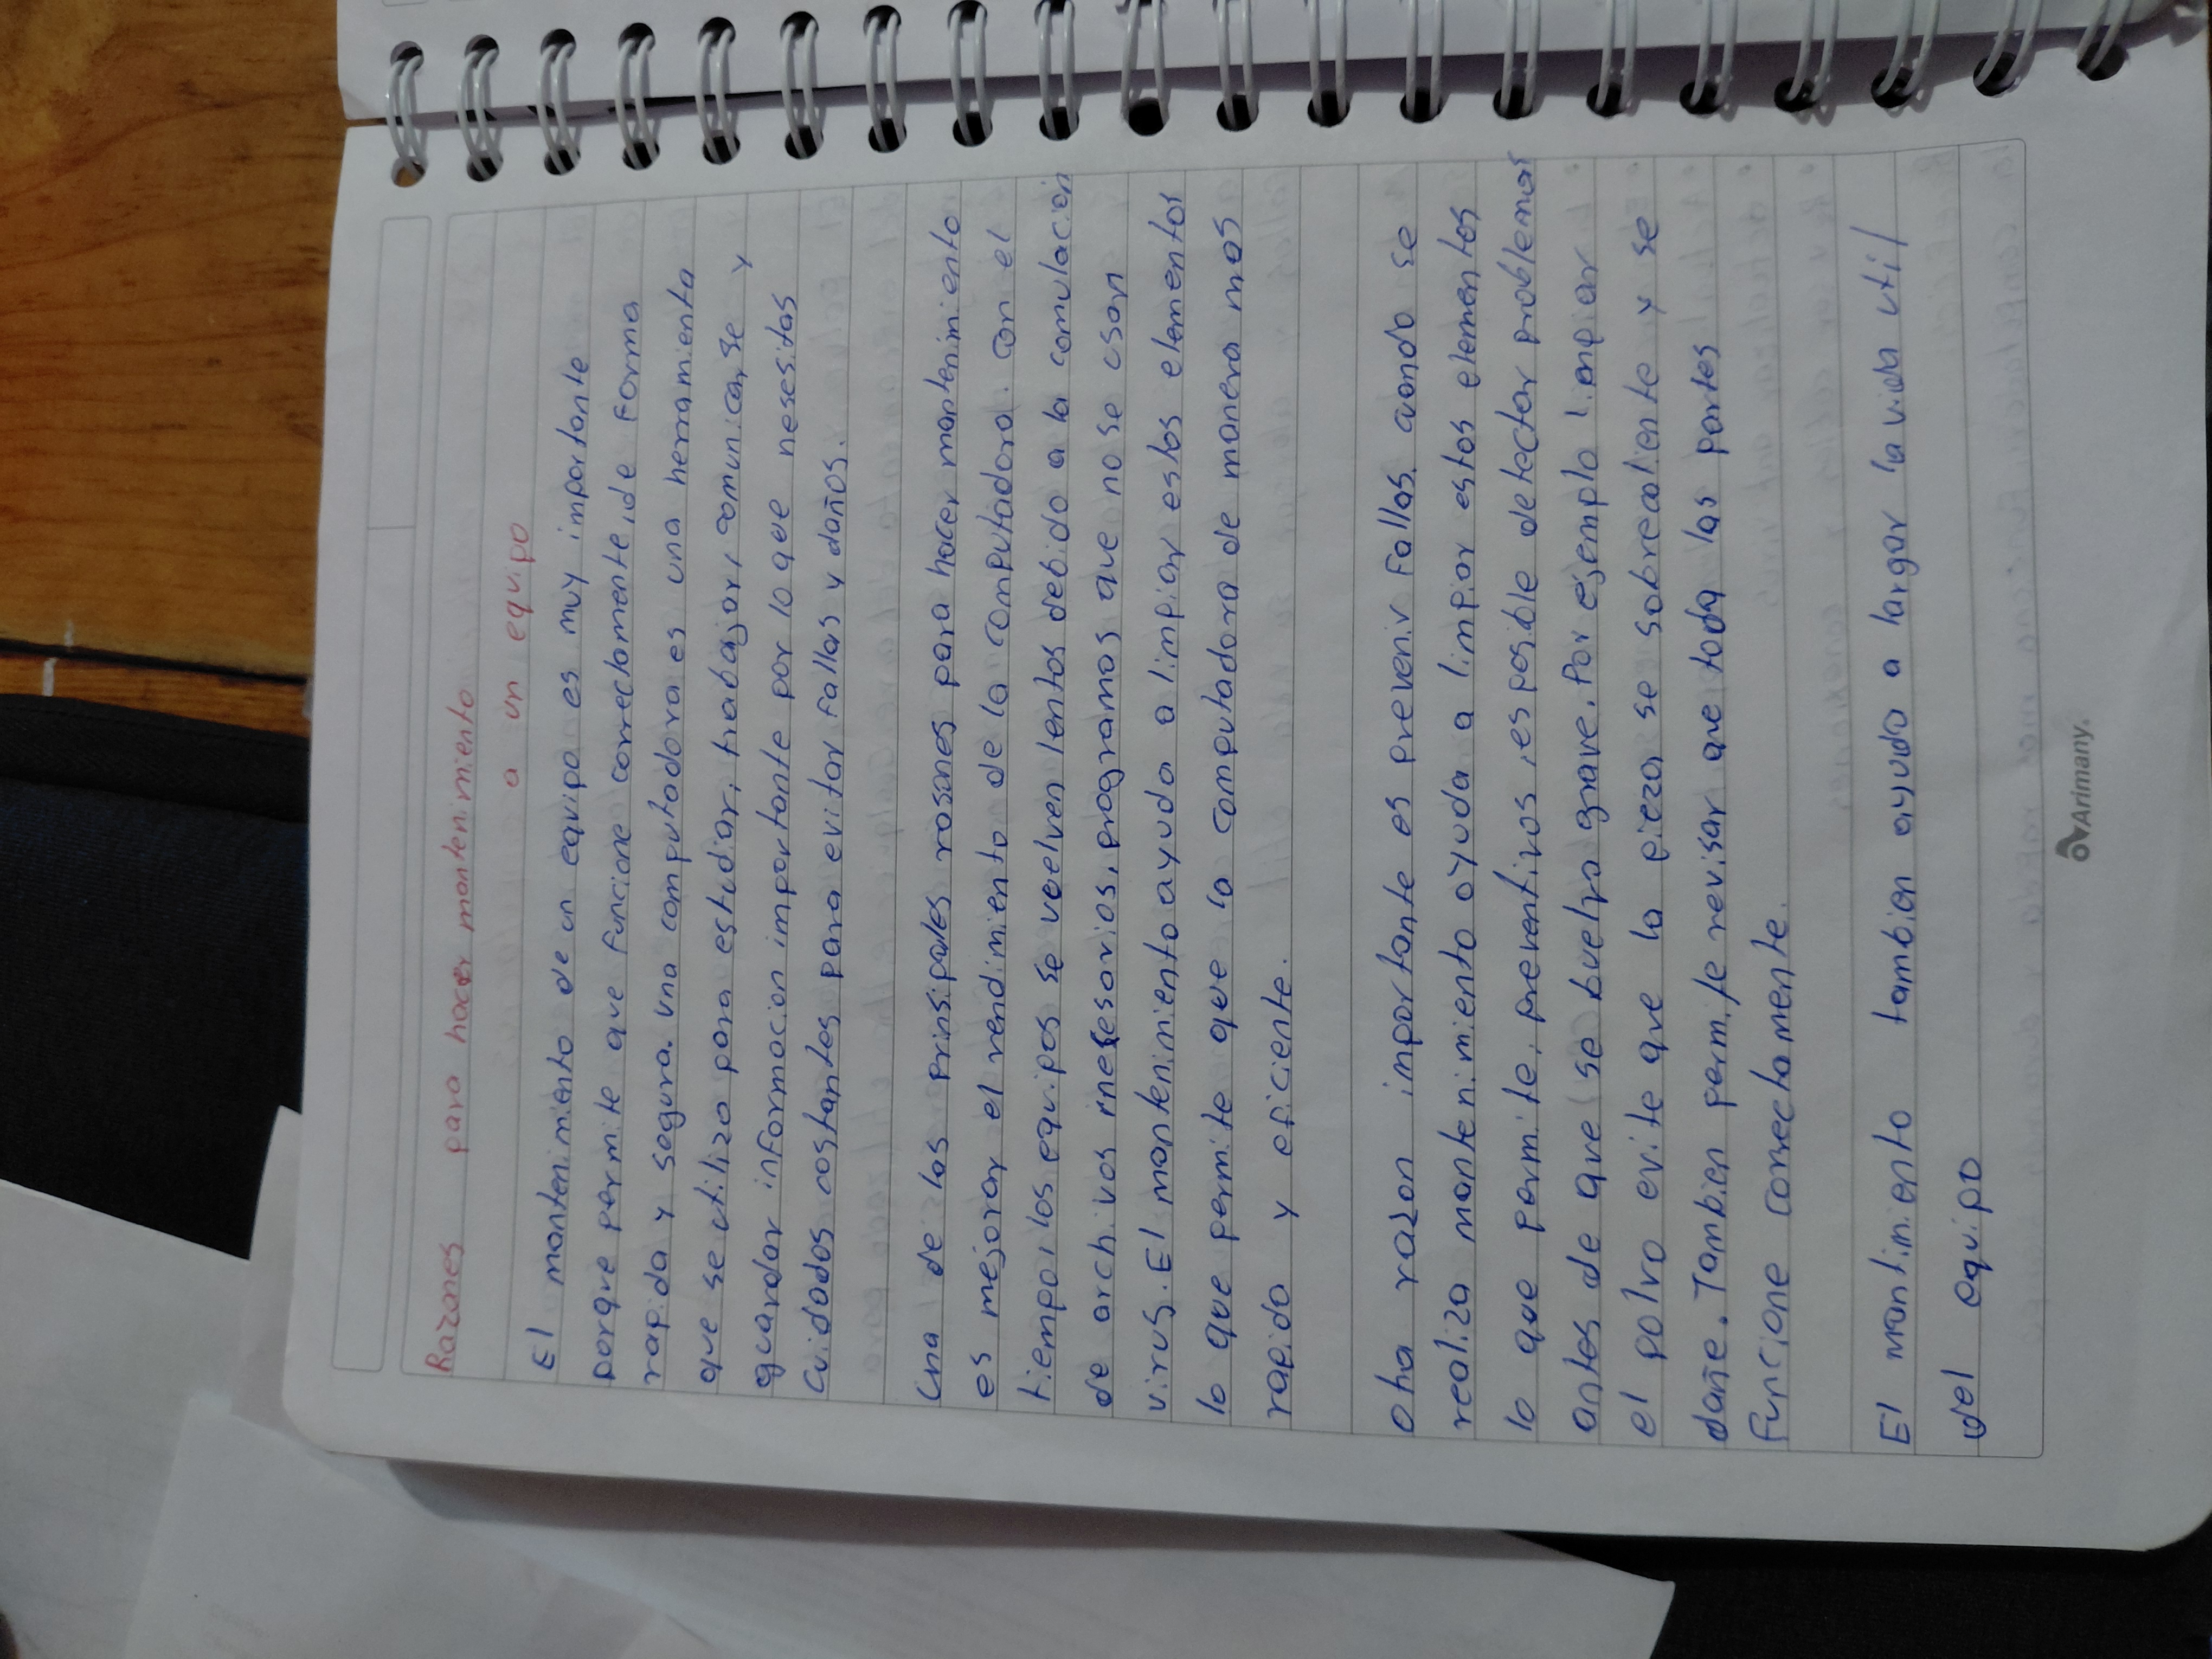 Razones para hacer mantenimiento
a un equipo
El mantenimiento de un equipo es muy importante
porque permite que funcione correctamente, de forma
rapida y segura. una computadora es una herramienta
que se utiliza para estudiar, trabajar, comunicarse y
guardar informacion importante por lo que nesesitas
Cuidados costantes para evitar fallas y daños.
Una de las prinsipales rasones para hacer mantenimiento
es mejorar el rendimiento de la computadora. con el
tiempo, los equipos se vuelven lentos debido a la comulación
de archivos nesesarios, programas que no se usan
virus. El mantenimiento ayuda a limpiar estos elementos
lo que permite que la computadora de manera mas
rapida y eficiente.
otra razon importante es prevenir fallas. cuando se
realiza mantenimiento ayuda a limpiar estos elementos
lo que permite, preventivos, es posible detectar problemas
antes de que se buelva grave. Por ejemplo limpiar
el polvo evite que la pieza se sobrecaliente y se
dañe. Tambien permite revisar que toda las partes
funcione correctamente.
El mantimiento tambien ayuda a largar la vida util
del equipo
Arimany.